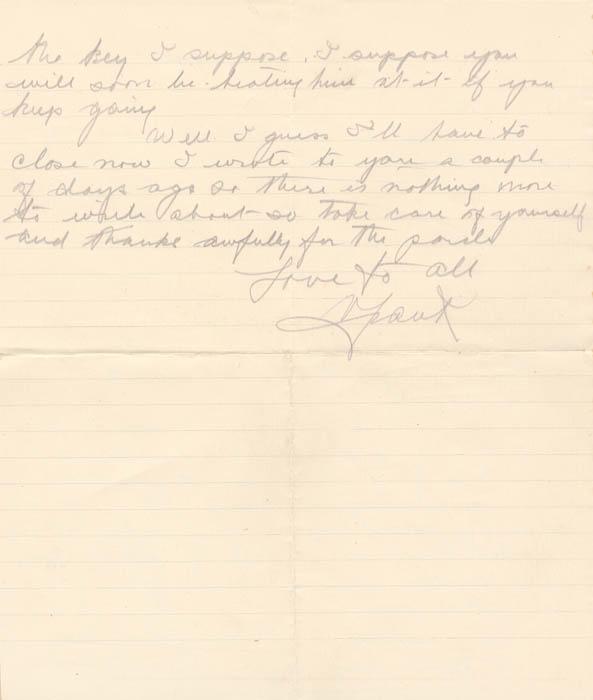 the key I suppose. I suppose you
will soon be beating him at it if you
keep going
Well I guess I'll have to
close now I wrote to you a couple
of days ago so there is nothing more
to write about so take care of yourself
and thanks awfully for the parcel
Love to all